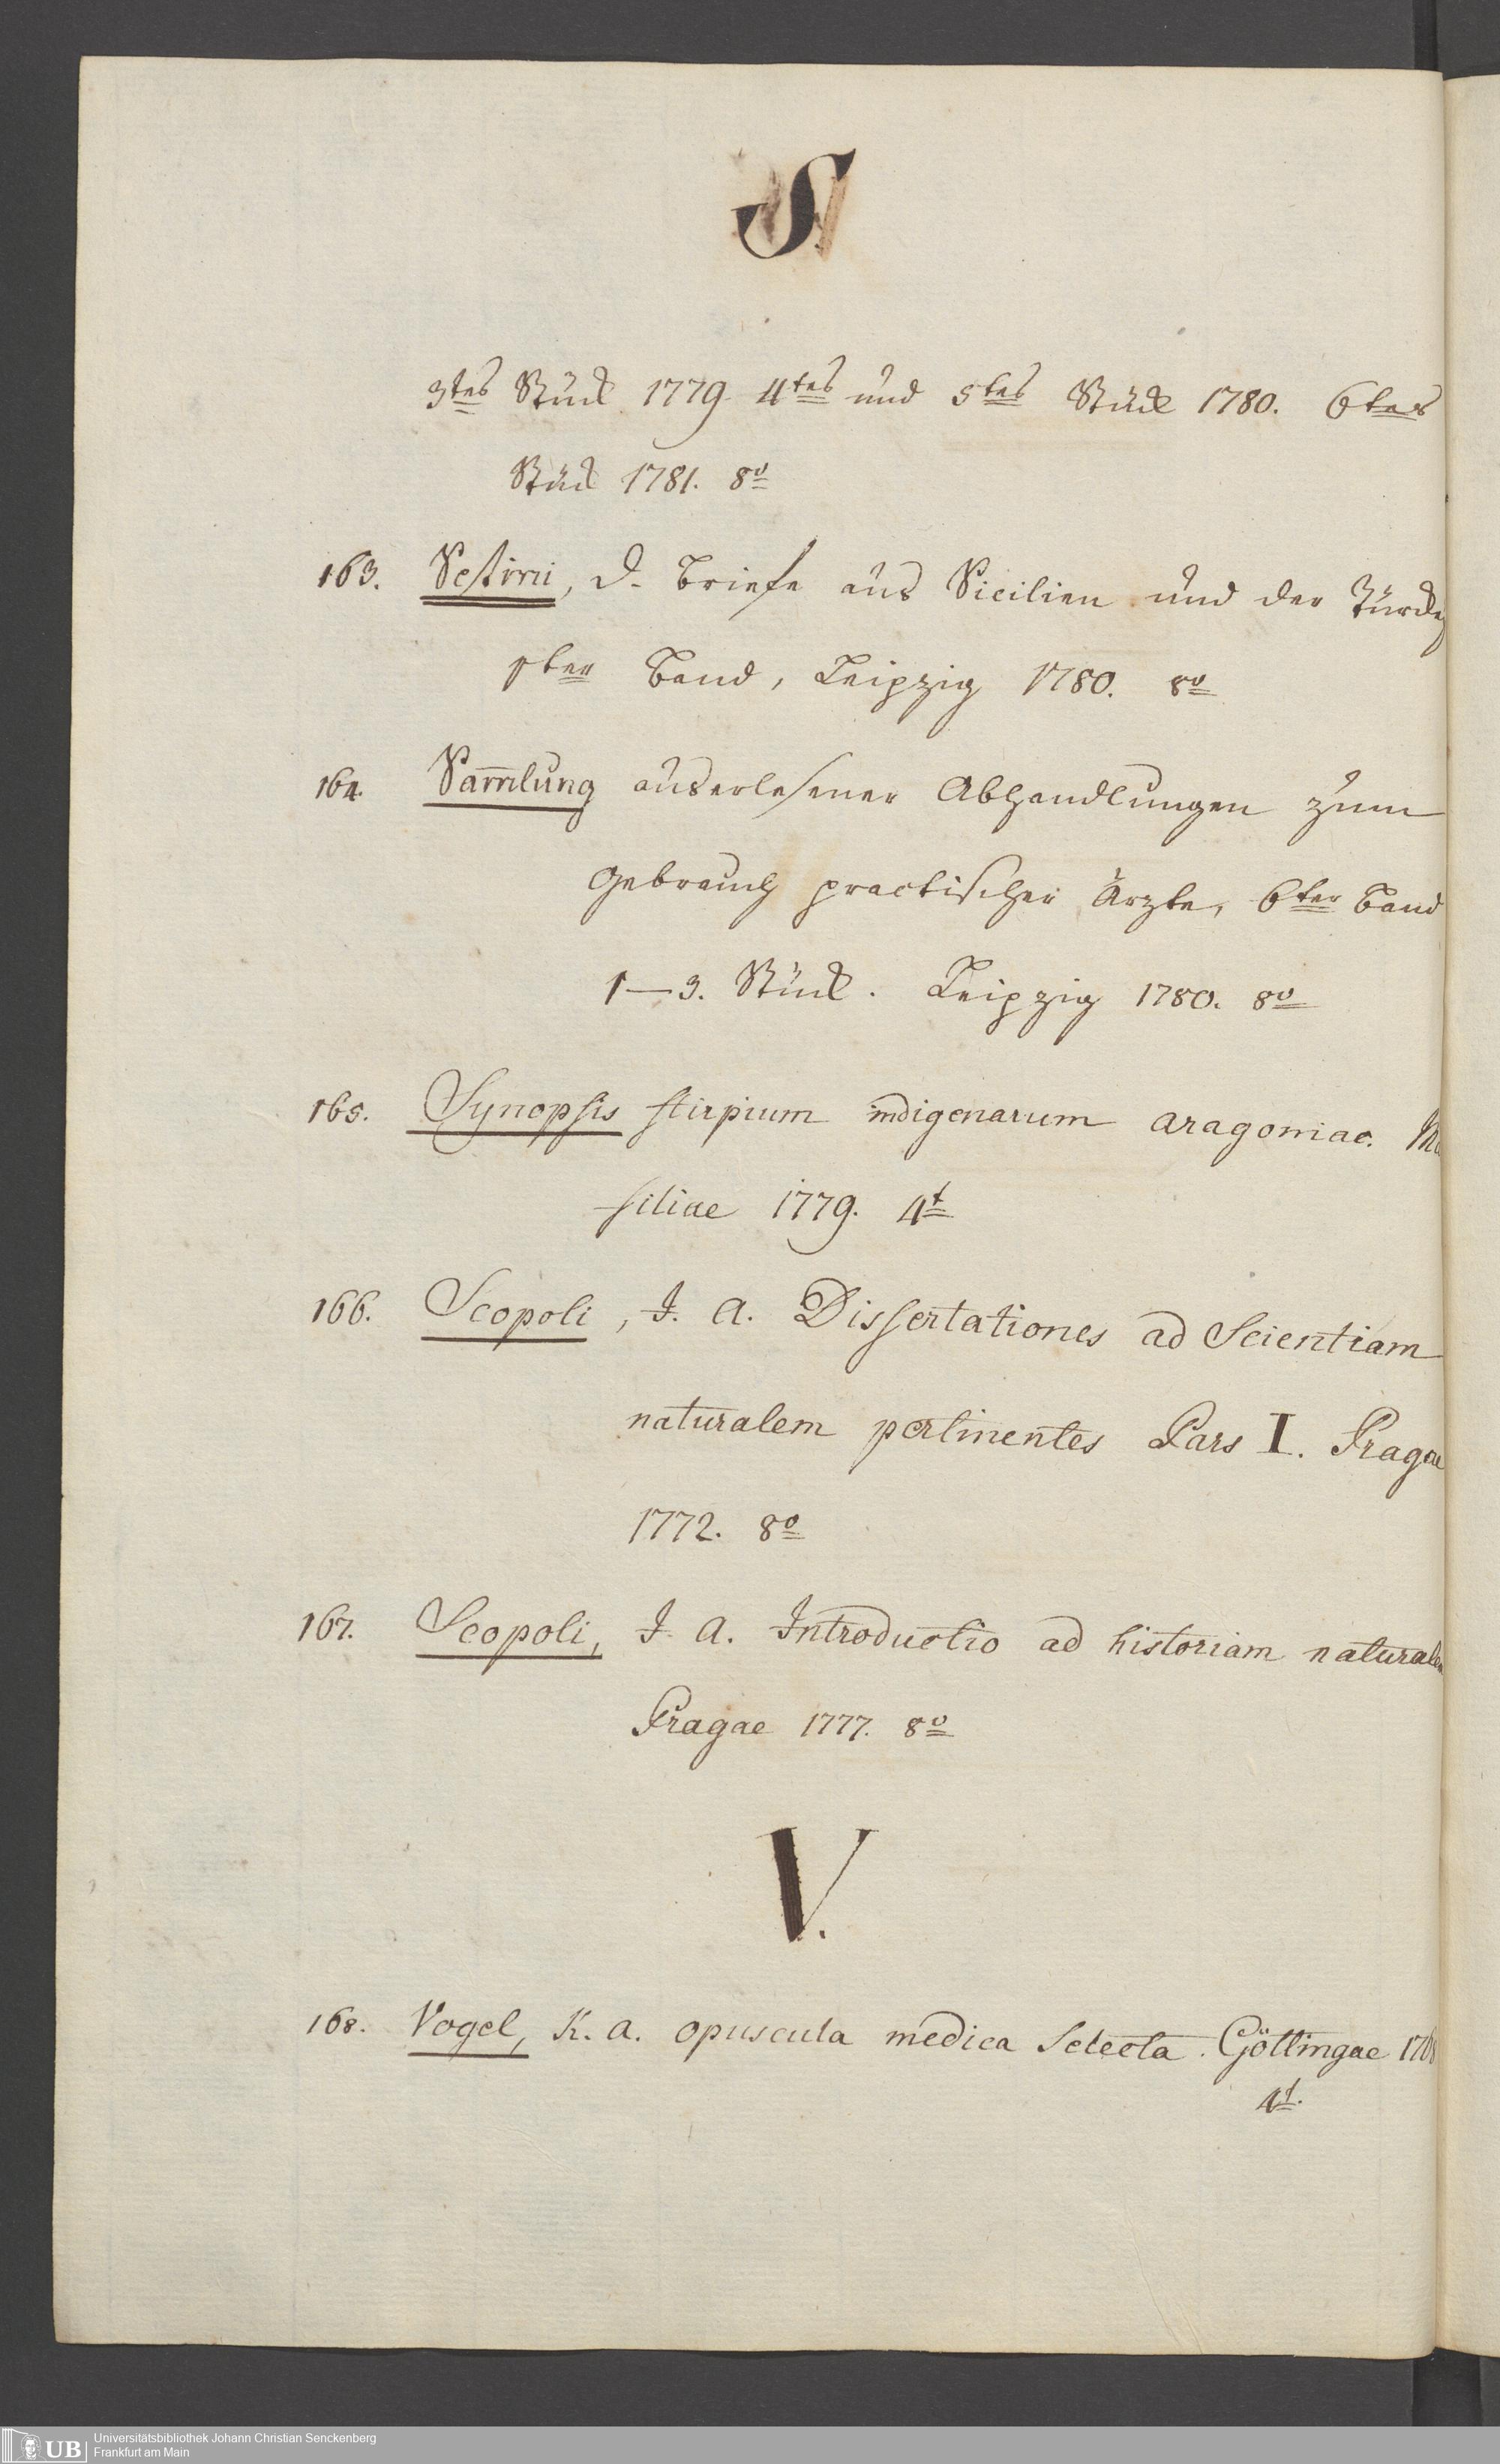 S.
3tes Stück 1779 4tes und 5tes Stück 1780. 6tes
Stück 1781. 8o
163. Sestini, D. Briefe aus Sicilien und der Türckey
1ter Band, Leipzig 1780. 8o
164. Sam̄lung auserlesener Abhandlungen zum
Gebrauch practischer Ärzte, 6ter Band
1–3. Stück. Leipzig 1780. 8o
165. Synopsis stirpium indigenarum aragoniae.
siliae 1779. 4t
166. Scopoli, I. A. Dissertationes ad Scientiam
naturalem pertinentes Pars I. Pragae
1772. 8o
167. Scopoli, I. A. Introductio ad historiam naturalem
Pragae 1777. 8o
V.
168. Vogel, R. A. opuscula medica Selecta. Göttingae
4t.
UB Universitätsbibliothek Johann Christian Senckenberg
Frankfurt am Main